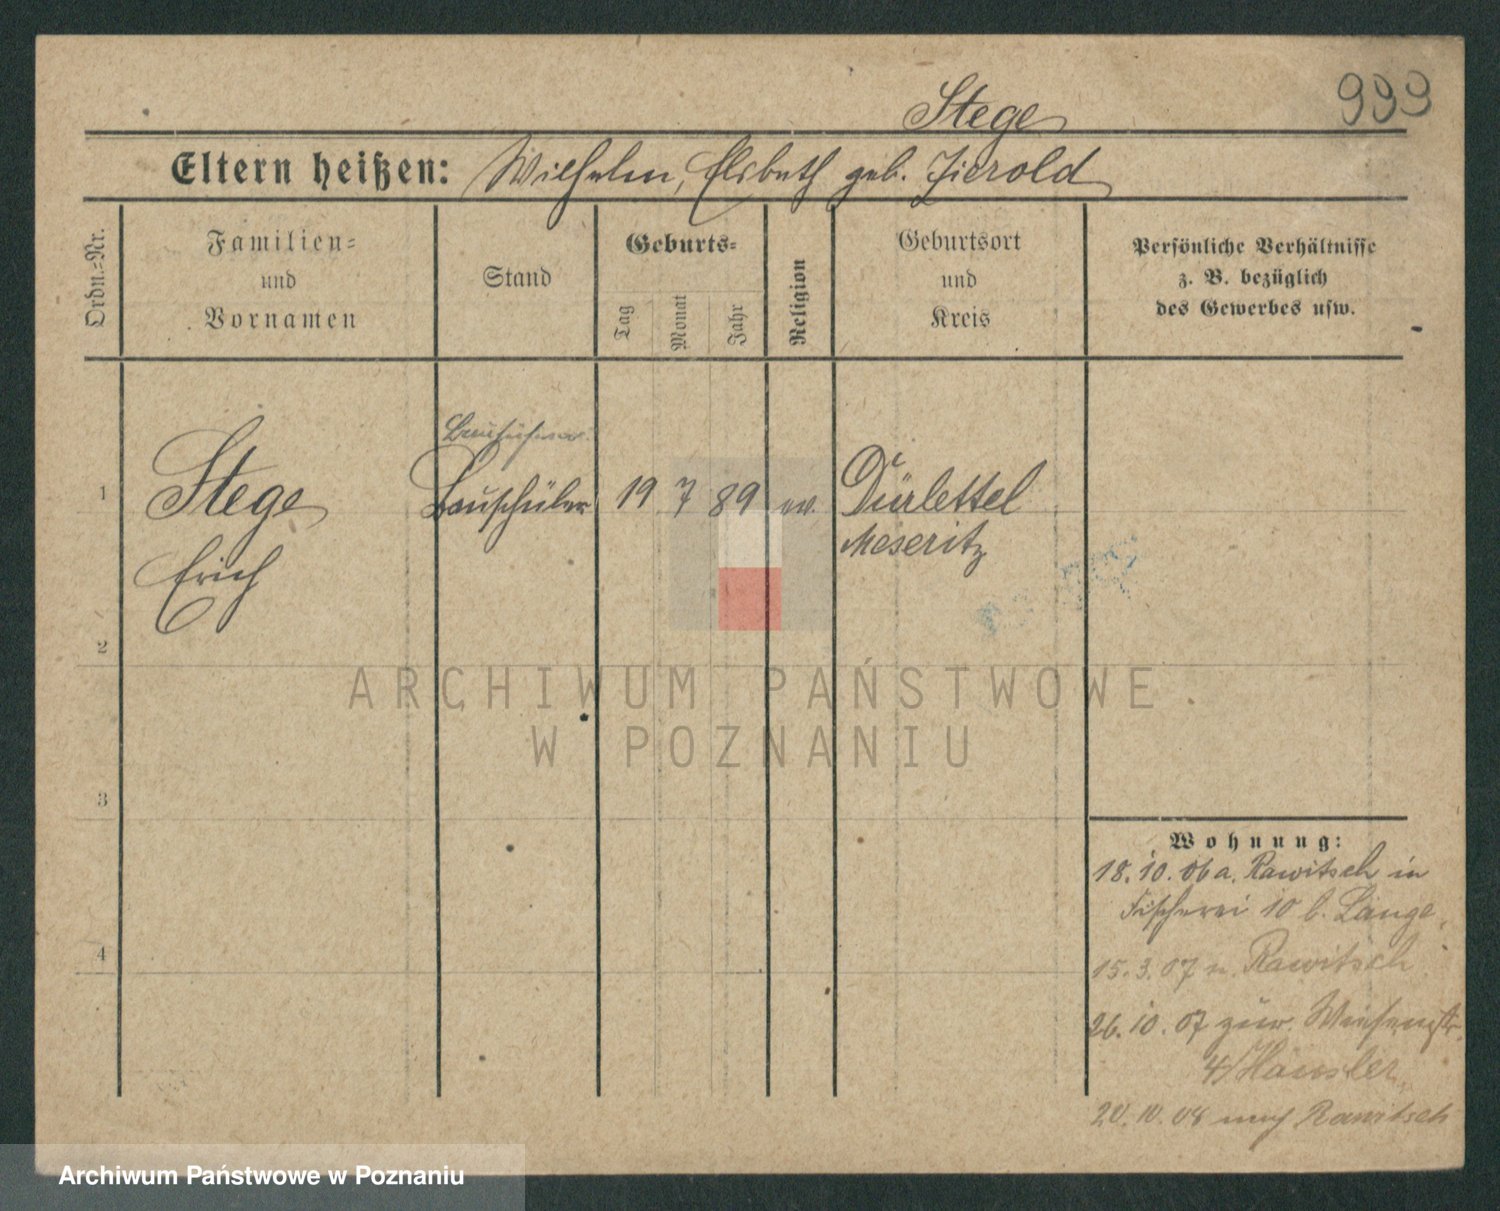 999
Stege
Eltern heißen: Wilhelm, Elsbeth geb. Zierold
Ordn.=Nr.
Familien=
und
Vornamen
Stand
Geburts=
Tag
Monat
Jahr
Religion
Geburtsort
und
Kreis
Persönliche Verhältnisse
z. B. bezüglich
des Gewerbes usw.
1
Stege
Erich
Bauschüler
19 7 89 ev.
Dürlettel
Meseritz
2
3
4
Wohnung:
18.10.06 a. Rawitsch in
Fischerei 10 b. Lange
15.3.07 n. Rawitsch
26.10.07 zur. Wiesenstr.
4/Häusler
20.10.08 nach Rawitsch
ARCHIWUM PAŃSTWOWE
W POZNANIU
Archiwum Państwowe w Poznaniu